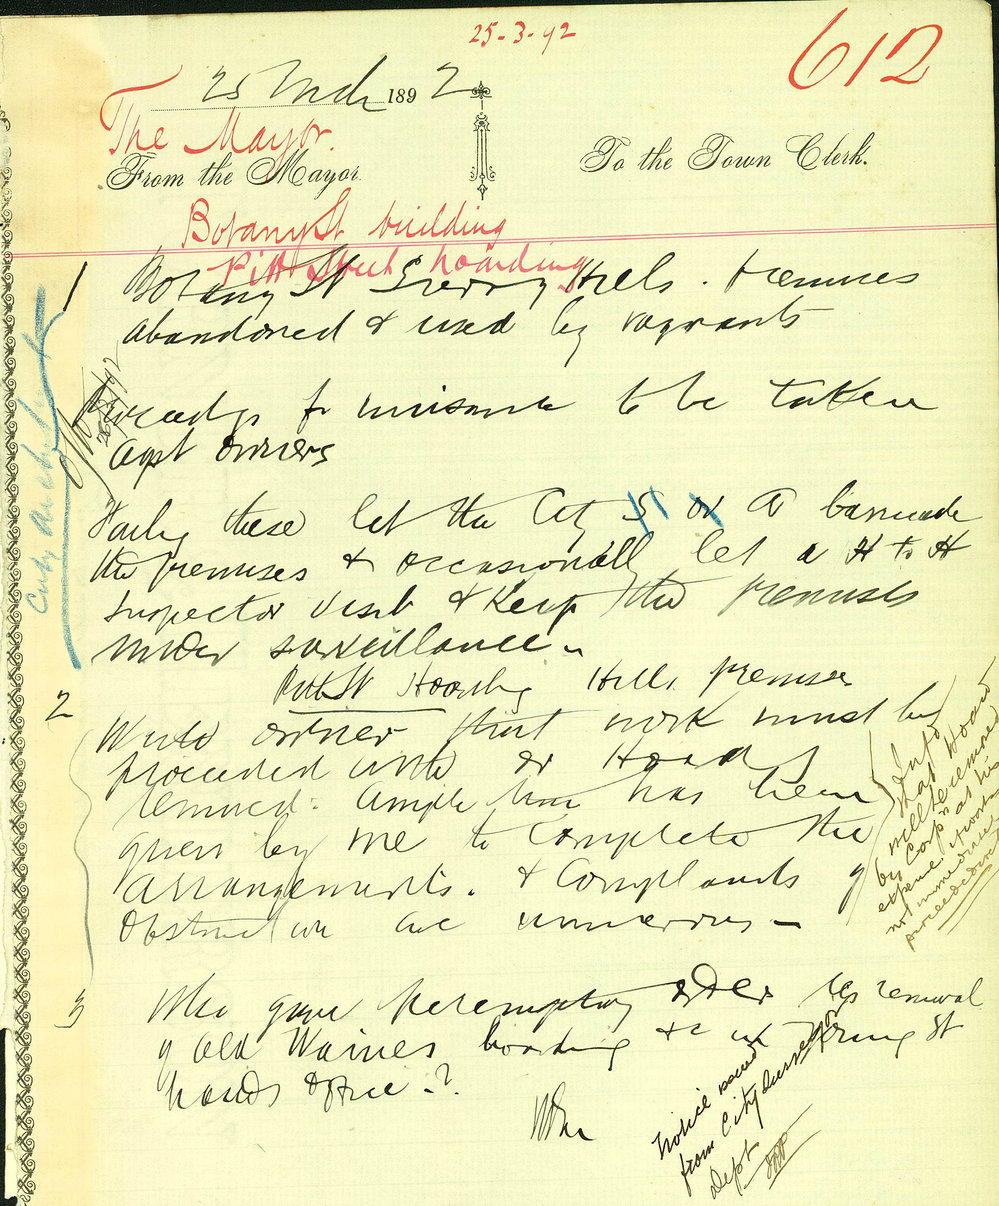 25-3-92
612
25 Mch 1892
The Mayor.
From the Mayor
To the Town Clerk.
Botany St building
Pitt Street hoarding
1
Botany St Surry Hills. Premises
abandoned & used by vagrants
Proceedgs for nuisance to be taken
agst owners
Failing these let the City S or A barricade
the premises & occasionally let a H to H
Inspector visit & Keep the premises
under surveillance
City Architect
2
Pitt St Hoarding Hills premises
Write owner that work must be
proceeded with or Hoardg
removed. Ample time has been
given by me to complete the
arrangements. & Complaints of
Obstruction are numerous -
Info
that Hoardg
will be removed
by Corpn at his
expense if work
not immediately
proceeded with
3
Who gave Peremptory order re removal
of Old Waines hoarding &c in King St
hoards office?
Notice issued
from City Surveyors
Dept